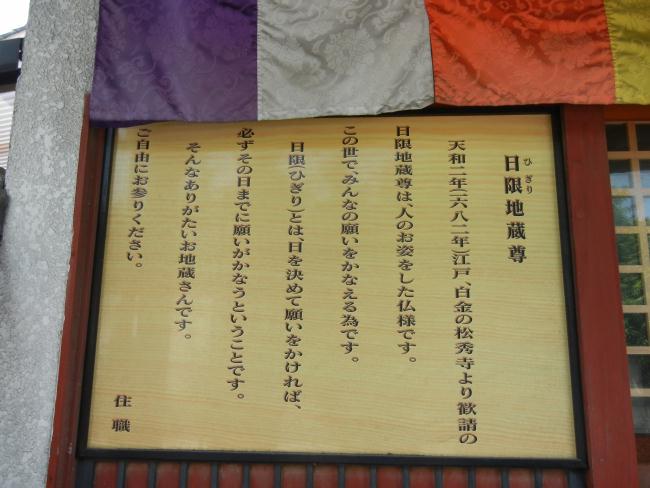 日限地蔵尊
ひぎり
天和二年(一六八二年)江戸、白金の松秀寺より歓請の
日限地蔵尊は、人のお姿をした仏様です。
この世で、みんなの願いをかなえる為です。
日限(ひぎり)とは、日を決めて願いをかければ、
必ずその日までに願いがかなうということです。
そんなありがたいお地蔵さんです。
ご自由にお参りください。
住職